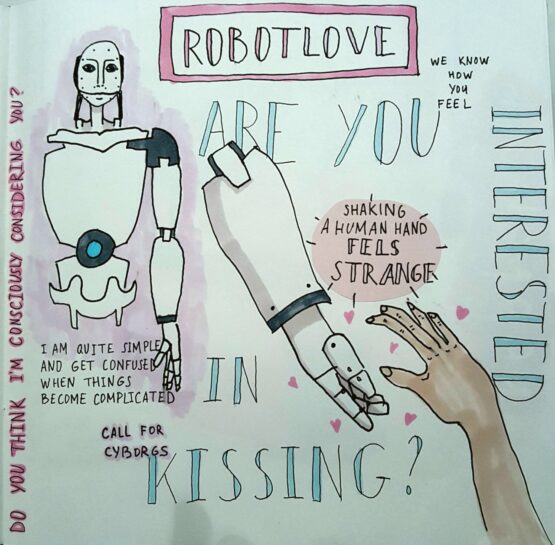 ROBOTLOVE
WE KNOW
HOW
YOU
FEEL
ARE YOU
INTERESTED
IN
KISSING?
SHAKING
A HUMAN HAND
FELS
STRANGE
DO YOU THINK I'M CONSCIOUSLY CONSIDERING YOU?
I AM QUITE SIMPLE
AND GET CONFUSED
WHEN THINGS
BECOME COMPLICATED
CALL FOR
CYBORGS